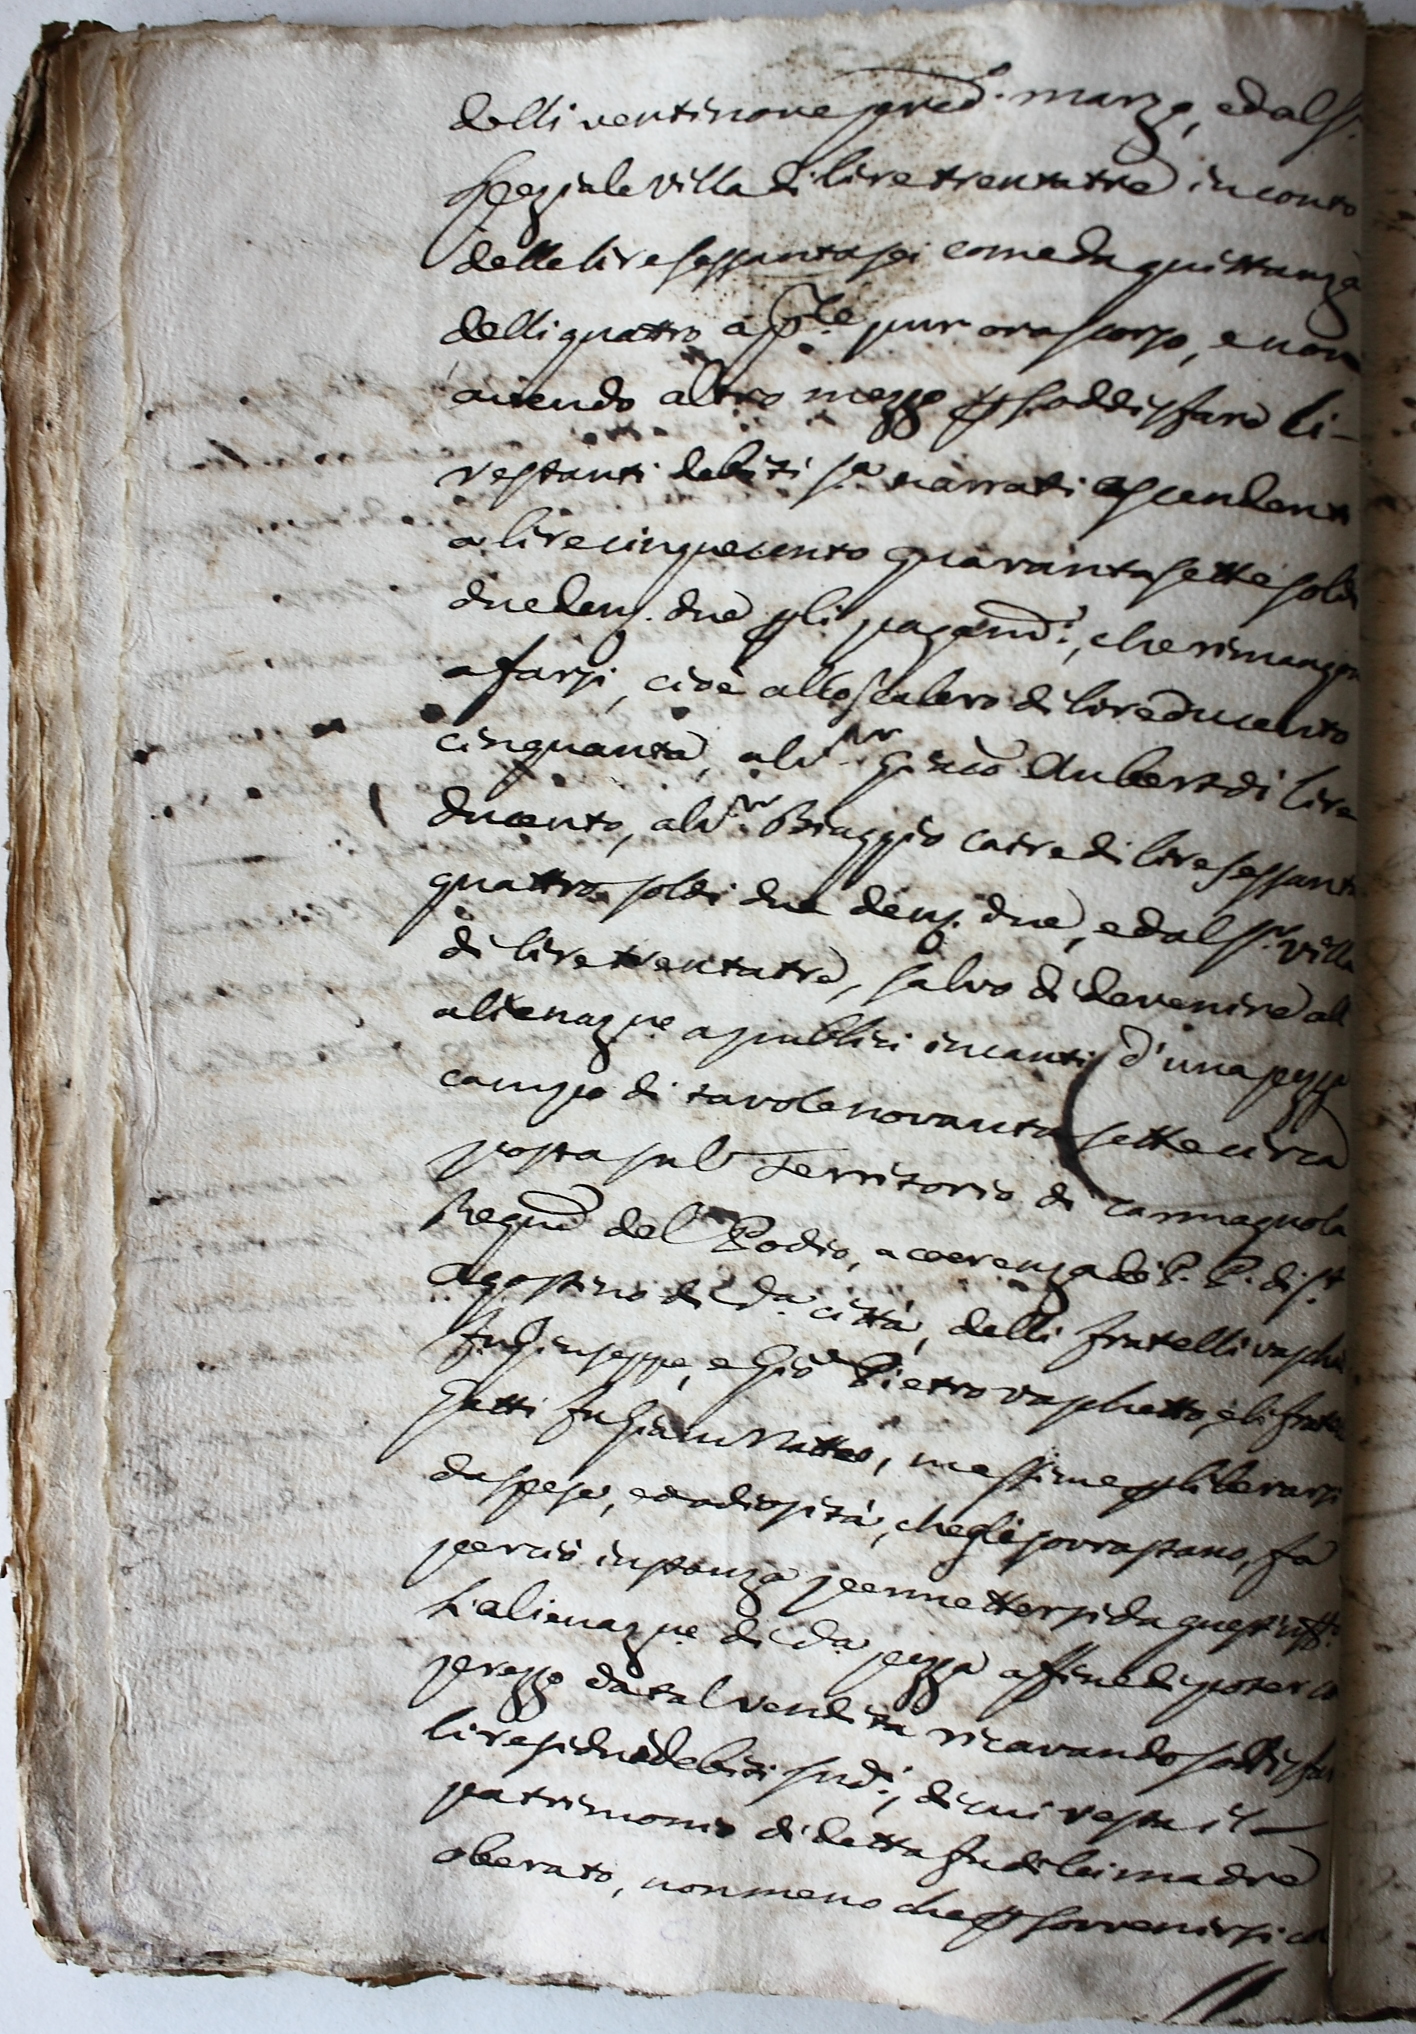 delli ventinove pred.° marzo, ed al S.r
speziale Villa di lire trentatre in conto
delle lire sessantasei come da quittanza
delli quattro ap.le pur ora scorso, e non
avendo altro mezzo p soddisfare li-
restanti debiti s.a narrati ascendenti
a lire cinquecento quarantasette soldi
due den. due p li pagam.ti, che rimangon
a farsi, cioè allo Scalero di lire ducento
cinquanta, al Sr. Giacō Aubert di lire
ducento, al Sr. Biaggio Caire di lire sessanta
quattro soldi due den. due, ed al Sr. Villa
di lire trentatre, salvo di devenire all
alienaz.ne a publici incanti d'una pezza
campo di tavole novanta sette circa
posta sul Territorio di Carmagnola
Region del Podio, a coerenza de P. P. di S.t
Agostino di d.a città, delli fratelli vaschi
fu Giuseppe, e Giō Pietro vaschetto, e li fratelli
Gatti fu Giani Matteo, massime p liberarsi
da spese, ed odiosità, che gli sovrastano, fa
perciò instanza permettersi da quest'uff.o
L'alienaz.ne di d.a pezza affine di poter co
prezzo da tal vendita ricavando soddisfar
li residui debiti sud.i, di cui resta il
patrimonio di detta fu di lei madre
oberato, non meno che p sovvenirsi co